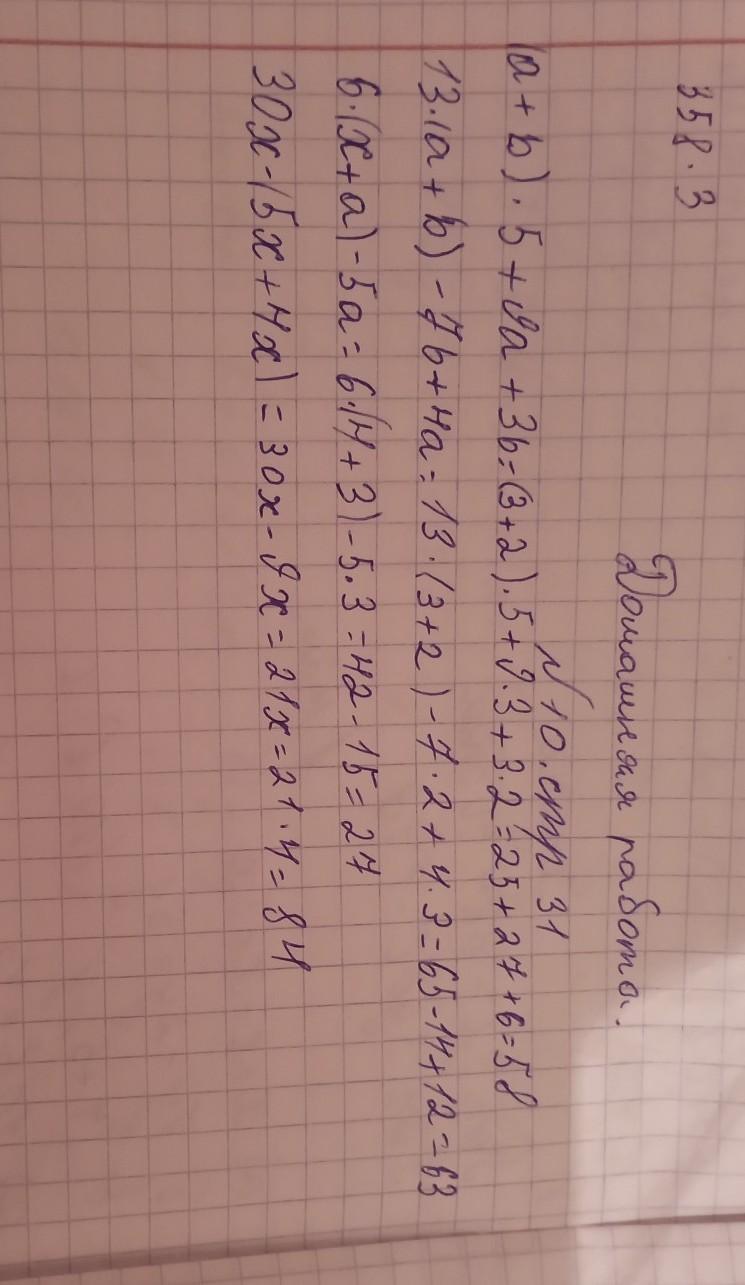 358·3
Домашняя работа.
N 10. стр 31
(a+b)·5+9a+3b=(3+2)·5+9·3+3·2=25+27+6=58
13·(a+b)-7b+4a=13·(3+2)-7·2+4·3=65-14+12=63
6·(x+a)-5a=6·(4+3)-5·3=42-15=27
30x-(5x+4x)=30x-9x=21x=21·4=84